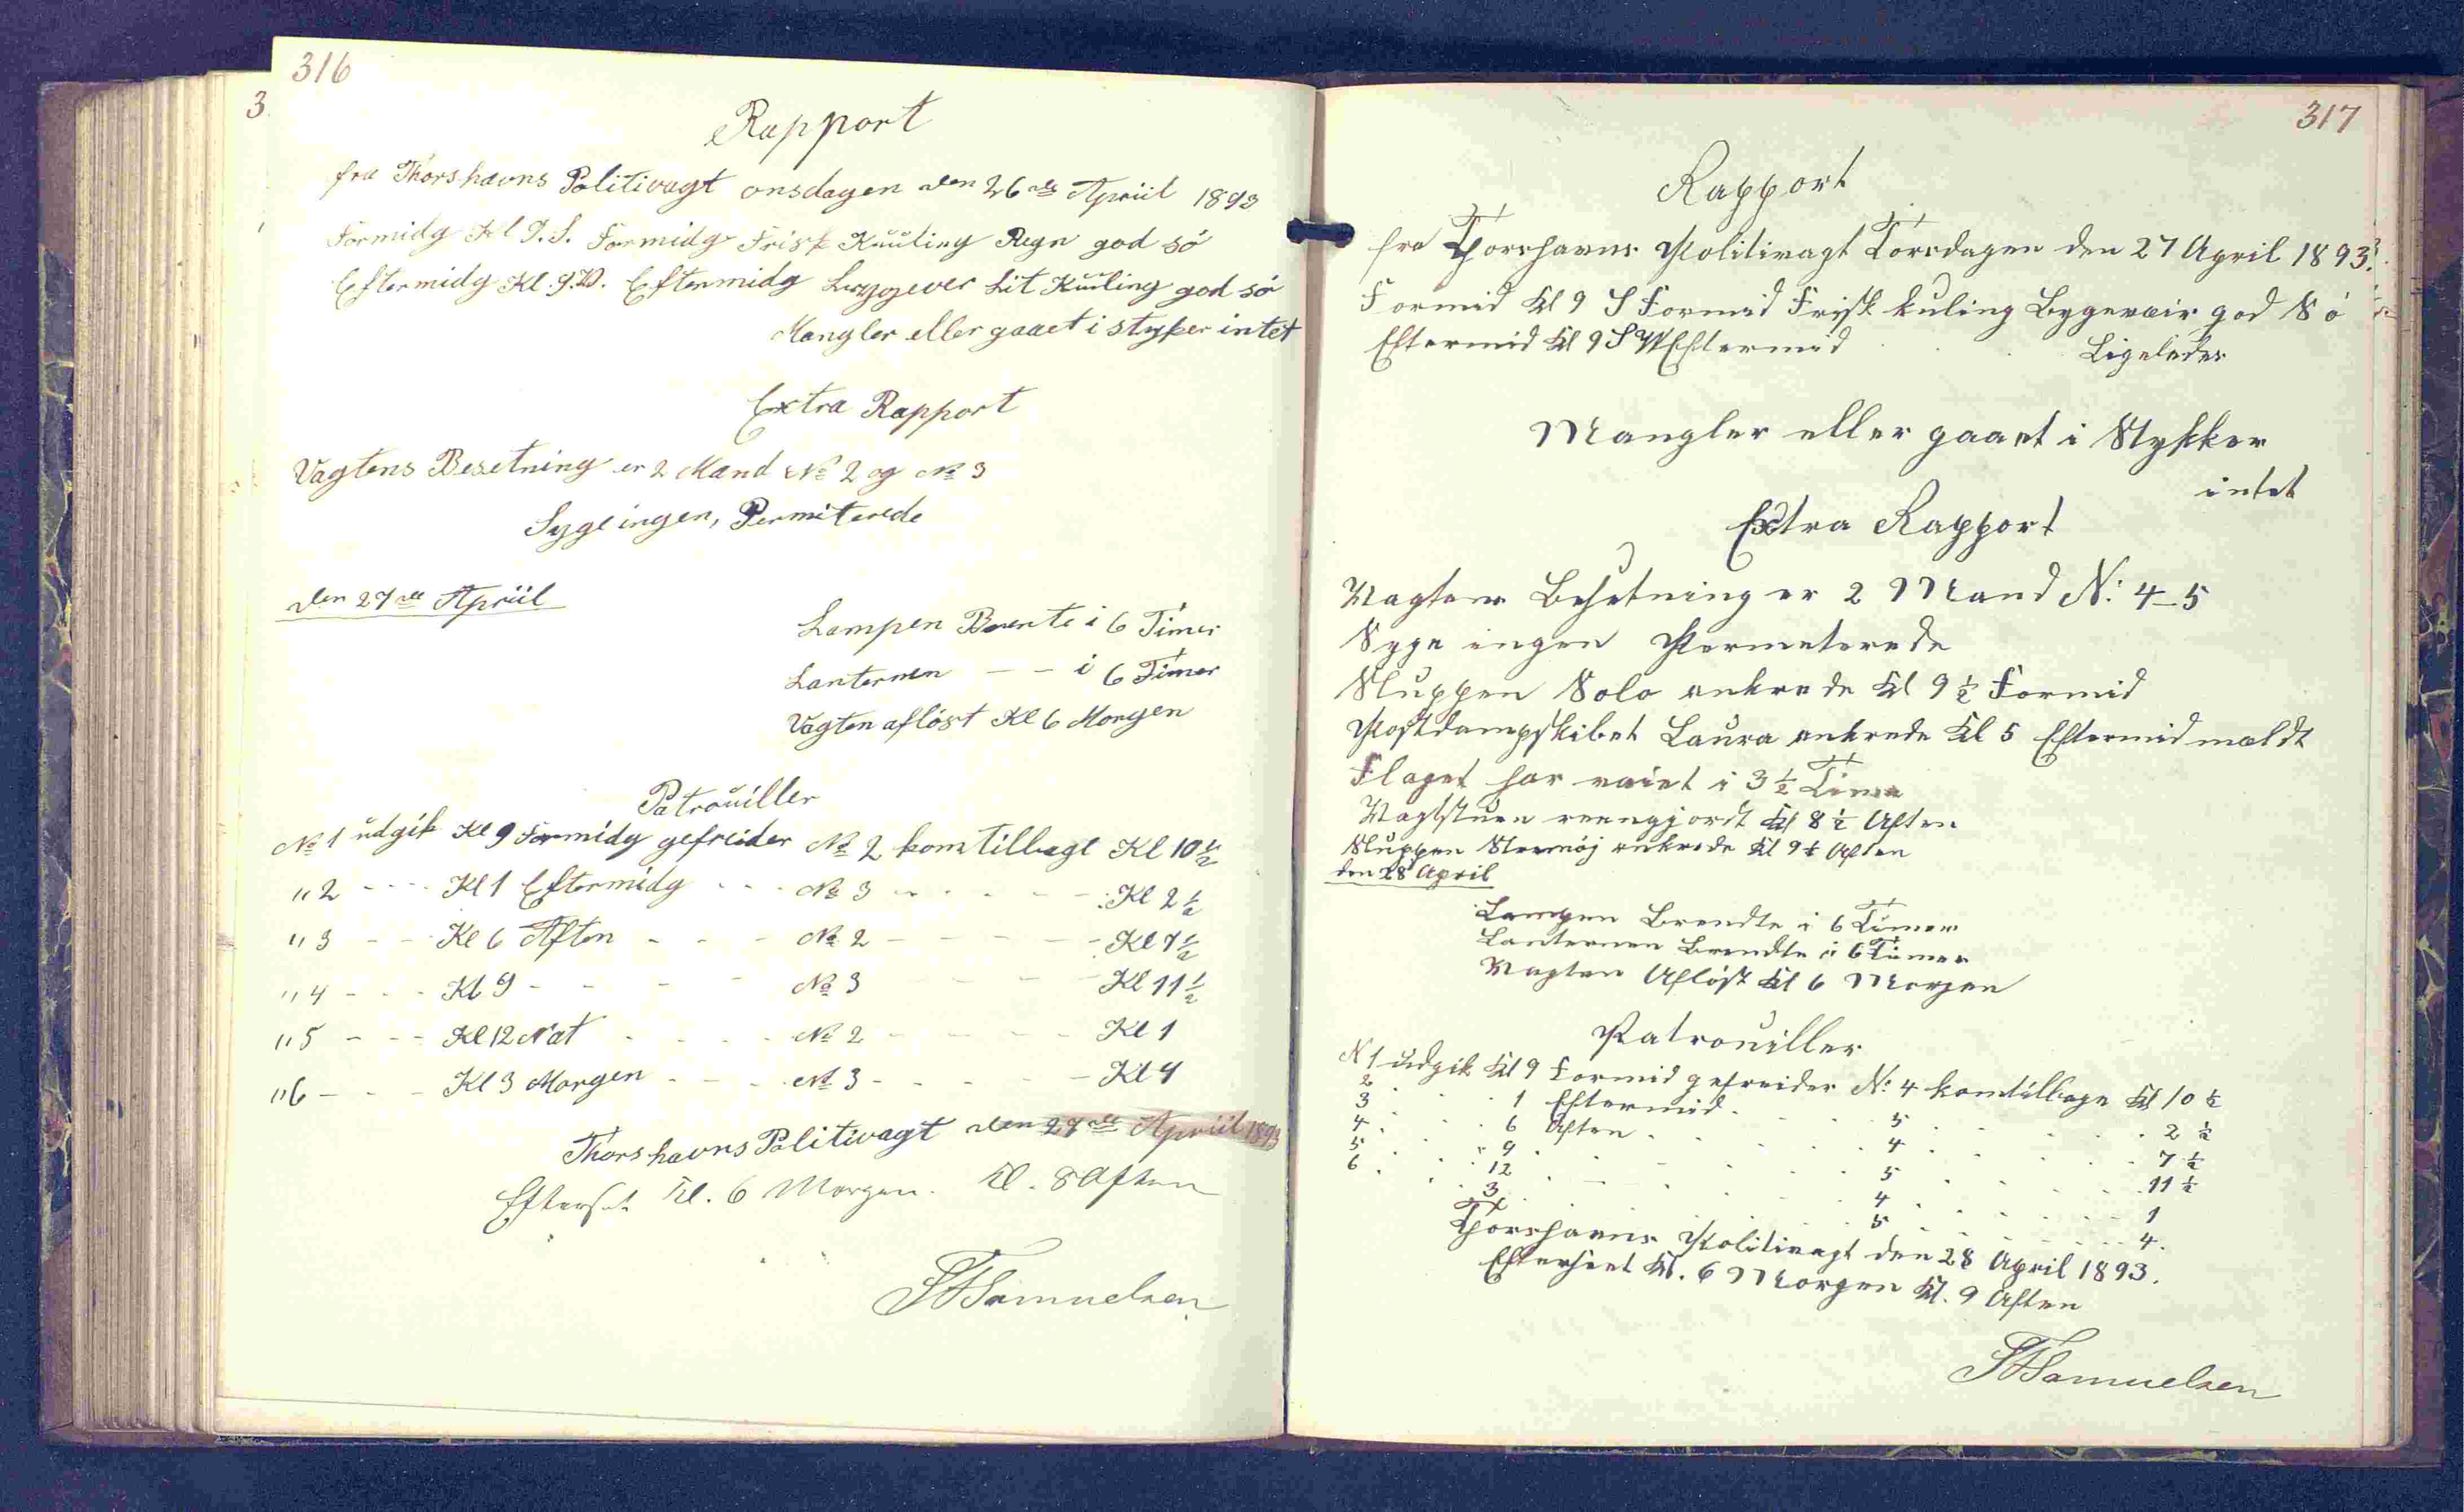 316
3
Rapport
fra Thorshavns Politivagt onsdagen den 26de Apriil 1893
Formidg Kl 9. S. Formidg Frisk Kuuling Regn god só
Eftermidg Kl. 9. W. Eftermidg Lit Kuuling god só
Mangler eller gaaet i styker intet
Extra Rapport
Vagtens Besetning er 2 Mand No 2 og No 3
Syge ingen, Permiterede
den 27de Apriil
Lampen Brente i 6 Timer
Lanternen - - i 6 Timer
Vagten aflöst Kl 6 Morgen
Patrouiller
No 1 udgik Kl 9 Formidg gefreider No 2 kom tilbage Kl 10 1/2
"2 - - - Kl 1 Eftermidg - - - No 3 - - - - Kl 2 1/2
"3 - - Kl 6 Aften - - - No 2 - - - - - Kl 7 1/2
"4 - - - Kl 9 - - - - No 3 - - Kl 11 1/2
"5 - - - Kl 12 Nat - - - - No 2 - - - - Kl 1
"6 - - - Kl 3 Morgen - - - No 3 - - - - - Kl 4
Thorshavns Politivagt den 27de Apriil 1893
Efterset Kl. 6 Morgen. Kl. 8 Aften
Samuelsen
317
Rapport
fra Thorshavns Politivagt Torsdagen den 27 April 1893.
Formid Kl 9 S Formid Frisk kuling Bygeveir god Só
Eftermid Kl 9 S W Eftermid . . Ligeledes
Mangler eller gaaet i Stykker
intet
Extra Rapport
Vagtens Besetning er 2 Mand N: 4-5
Syge ingen Permeterede
Sluppen Solo ankrede Kl 9 1/2 Formid
Postdampskibet Laura ankrede Kl 5 Eftermid meldt
Flaget har vaiet i 3 1/2 Time
Vagtstuen reengjordt Kl 8 1/2 Aften
Sluppen Strømøj ankrede Kl 9 1/2 Aften
den 28 April
Lampen Brendte i 6 Timer
Lanternen Brendte i 6 Timer
Vagten Aflöst Kl 6 Morgen
Patrouiller
N 1 udgik Kl 9 Formid gefreider N: 4 kom tilbage Kl 10 1/2
2 . . . 1 Eftermid . . . 5 . . . . 2 1/2
3 . . . 6 Aften . . . . 4 . . . . 7 1/2
4 . . . 9 . . . . 5 . . . . 11 1/2
5 . . . 12 . . . . 4 . . . . 1
6 . . . 3 . . . . 5 . . . . 4.
Thorshavns Politivagt den 28 April 1893.
Efterseet Kl. 6 Morgen Kl. 9 Aften
Samuelsen